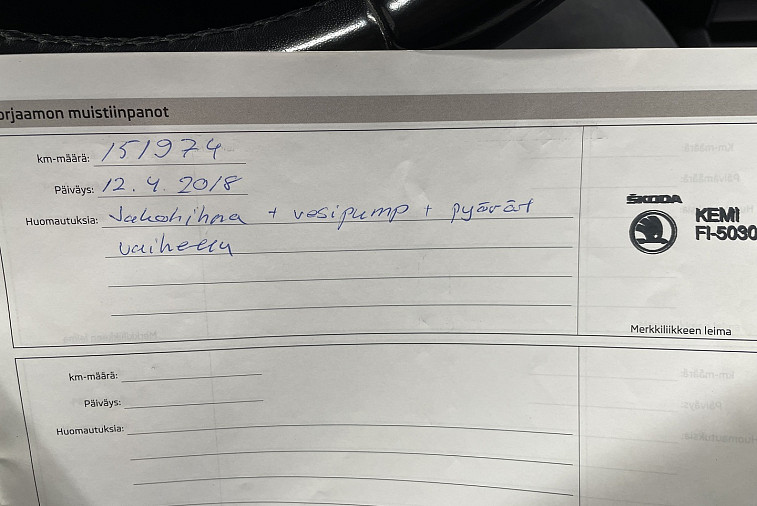 orjaamon muistiinpanot
km-määrä: 151974
Päiväys: 12.4.2018
Huomautuksia: Jakohihna + vesipump + pyärät
vaihettu
ŠKODA
KEMI
FI-5030
Merkkiliikkeen leima
km-määrä:
Päiväys:
Huomautuksia: